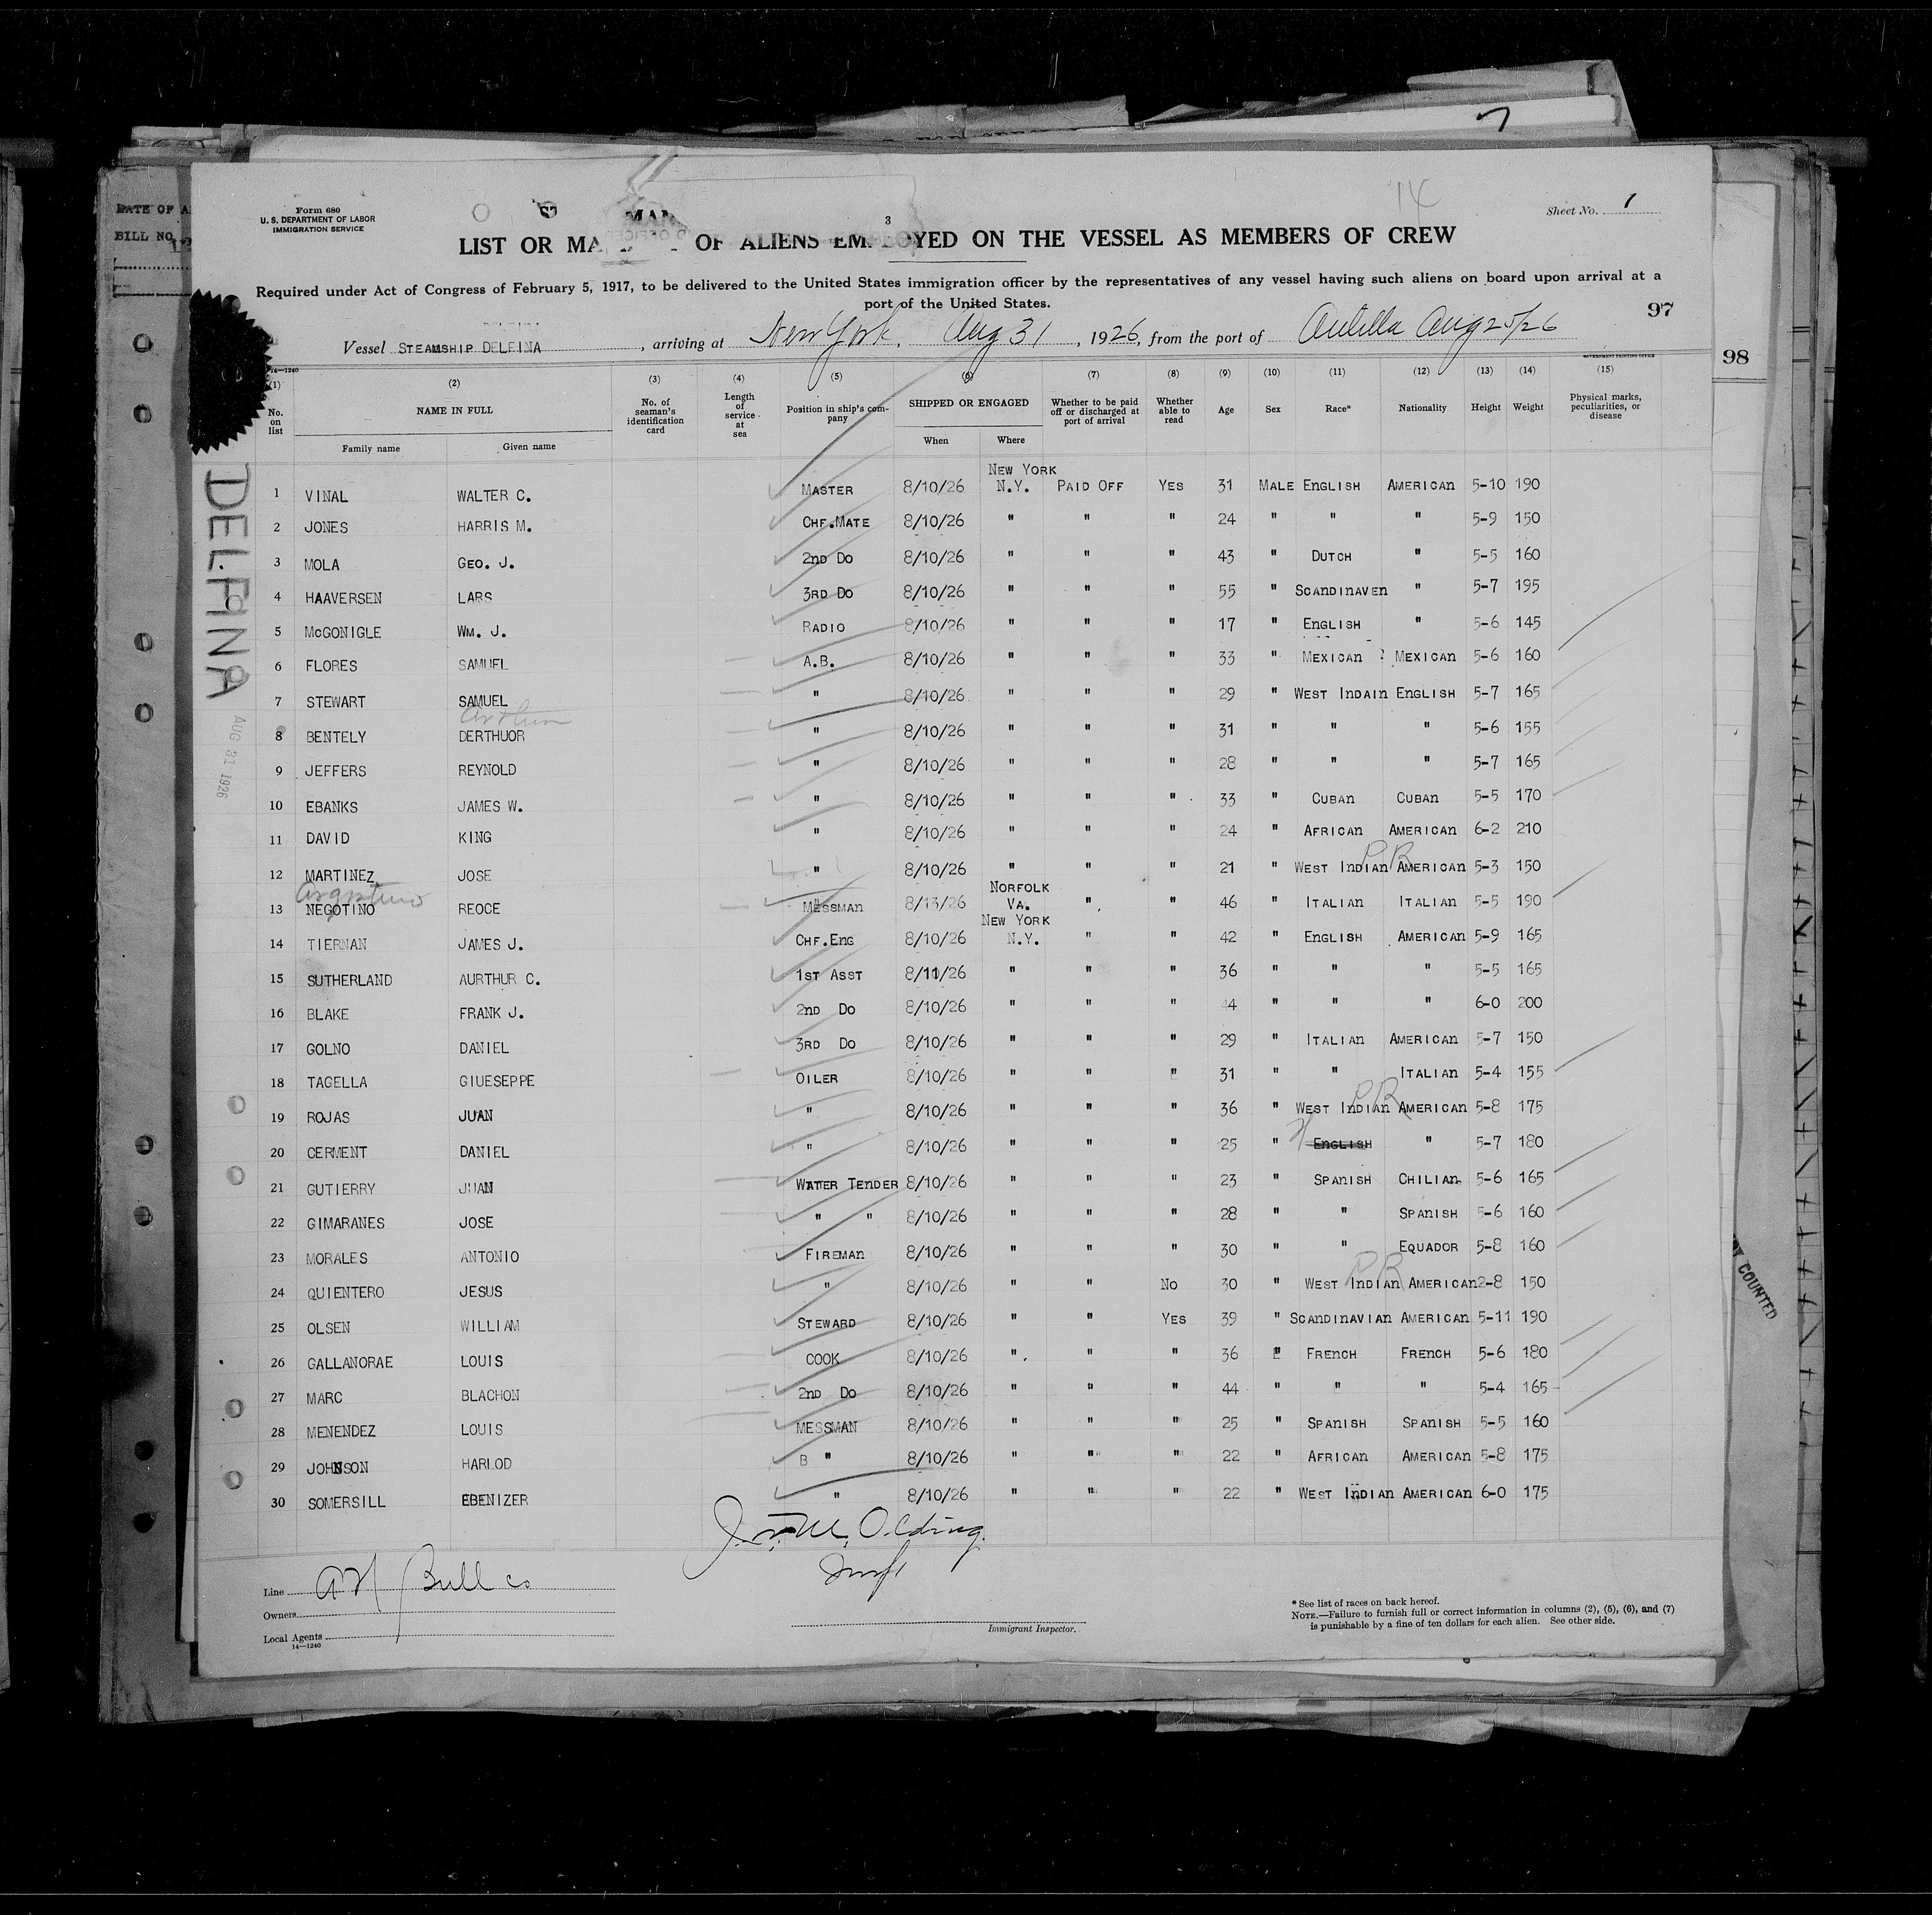 DATE OF A
BILL NO.
Form 680
U. S. DEPARTMENT OF LABOR
IMMIGRATION SERVICE
3
14
Sheet No. 1
LIST OR MA OF ALIENS EM OYED ON THE VESSEL AS MEMBERS OF CREW
Required under Act of Congress of February 5, 1917, to be delivered to the United States immigration officer by the representatives of any vessel having such aliens on board upon arrival at a
port of the United States.
97
98
Vessel STEAMSHIP DELFINA, arriving at New York, Aug 31, 1926, from the port of Antilla Aug 25/26
14—1240
GOVERNMENT PRINTING OFFICE
(1) (2) (3) (4) (5) (6) (7) (8) (9) (10) (11) (12) (13) (14) (15)
No. on list NAME IN FULL No. of seaman's identification card Length of service at sea Position in ship's company SHIPPED OR ENGAGED Whether to be paid off or discharged at port of arrival Whether able to read Age Sex Race* Nationality Height Weight Physical marks, peculiarities, or disease
Family name Given name When Where
DELFINA
AUG 31 1926
NEW YORK
1 VINAL WALTER C. MASTER 8/10/26 N.Y. PAID OFF YES 31 MALE ENGLISH AMERICAN 5-10 190
2 JONES HARRIS M. CHF.MATE 8/10/26 " " " 24 " " " 5-9 150
3 MOLA GEO. J. 2ND DO 8/10/26 " " " 43 " DUTCH " 5-5 160
4 HAAVERSEN LARS 3RD DO 8/10/26 " " " 55 " SCANDINAVEN " 5-7 195
5 McGONIGLE WM. J. RADIO 8/10/26 " " " 17 " ENGLISH " 5-6 145
6 FLORES SAMUEL A.B. 8/10/26 " " " 33 " MEXICAN MEXICAN 5-6 160
7 STEWART SAMUEL " 8/10/26 " " " 29 " WEST INDAIN ENGLISH 5-7 165
Arthur
8 BENTELY DERTHUOR " 8/10/26 " " " 31 " " " 5-6 155
9 JEFFERS REYNOLD " 8/10/26 " " " 28 " " " 5-7 165
10 EBANKS JAMES W. " 8/10/26 " " " 33 " CUBAN CUBAN 5-5 170
11 DAVID KING " 8/10/26 " " " 24 " AFRICAN AMERICAN 6-2 210
PR
12 MARTINEZ JOSE " 8/10/26 " " " 21 " WEST INDIAN AMERICAN 5-3 150
NORFOLK
13 NEGOTINO REOCE MESSMAN 8/13/26 VA. " " 46 " ITALIAN ITALIAN 5-5 190
NEW YORK
14 TIERNAN JAMES J. CHF.ENG 8/10/26 N.Y. " " 42 " ENGLISH AMERICAN 5-9 165
15 SUTHERLAND AURTHUR C. 1ST ASST 8/11/26 " " " 36 " " " 5-5 165
16 BLAKE FRANK J. 2ND DO 8/10/26 " " " 44 " " " 6-0 200
17 GOLNO DANIEL 3RD DO 8/10/26 " " " 29 " ITALIAN AMERICAN 5-7 150
18 TAGELLA GIUESEPPE OILER 8/10/26 " " " 31 " " ITALIAN 5-4 155
PR
19 ROJAS JUAN " 8/10/26 " " " 36 " WEST INDIAN AMERICAN 5-8 175
20 CERMENT DANIEL " 8/10/26 " " " 25 " ENGLISH " 5-7 180
21 GUTIERRY JUAN WATER TENDER 8/10/26 " " " 23 " SPANISH CHILIAN 5-6 165
22 GIMARANES JOSE " " 8/10/26 " " " 28 " " SPANISH 5-6 160
23 MORALES ANTONIO FIREMAN 8/10/26 " " " 30 " " EQUADOR 5-8 160
PR
24 QUIENTERO JESUS " 8/10/26 " " NO 30 " WEST INDIAN AMERICAN 2-8 150
25 OLSEN WILLIAM STEWARD 8/10/26 " " YES 39 " SCANDINAVIAN AMERICAN 5-11 190
26 GALLANORAE LOUIS COOK 8/10/26 " " " 36 " FRENCH FRENCH 5-6 180
27 MARC BLACHON 2ND DO 8/10/26 " " " 44 " " " 5-4 165
28 MENENDEZ LOUIS MESSMAN 8/10/26 " " " 25 " SPANISH SPANISH 5-5 160
29 JOHNSON HARLOD B " 8/10/26 " " " 22 " AFRICAN AMERICAN 5-8 175
30 SOMERSILL EBENIZER " 8/10/26 " " " 22 " WEST INDIAN AMERICAN 6-0 175
Olding
Line A H Bull co
Owners
Local Agents
14—1240
Immigrant Inspector.
* See list of races on back hereof.
NOTE.—Failure to furnish full or correct information in columns (2), (5), (6), and (7)
is punishable by a fine of ten dollars for each alien. See other side.
COUNTED